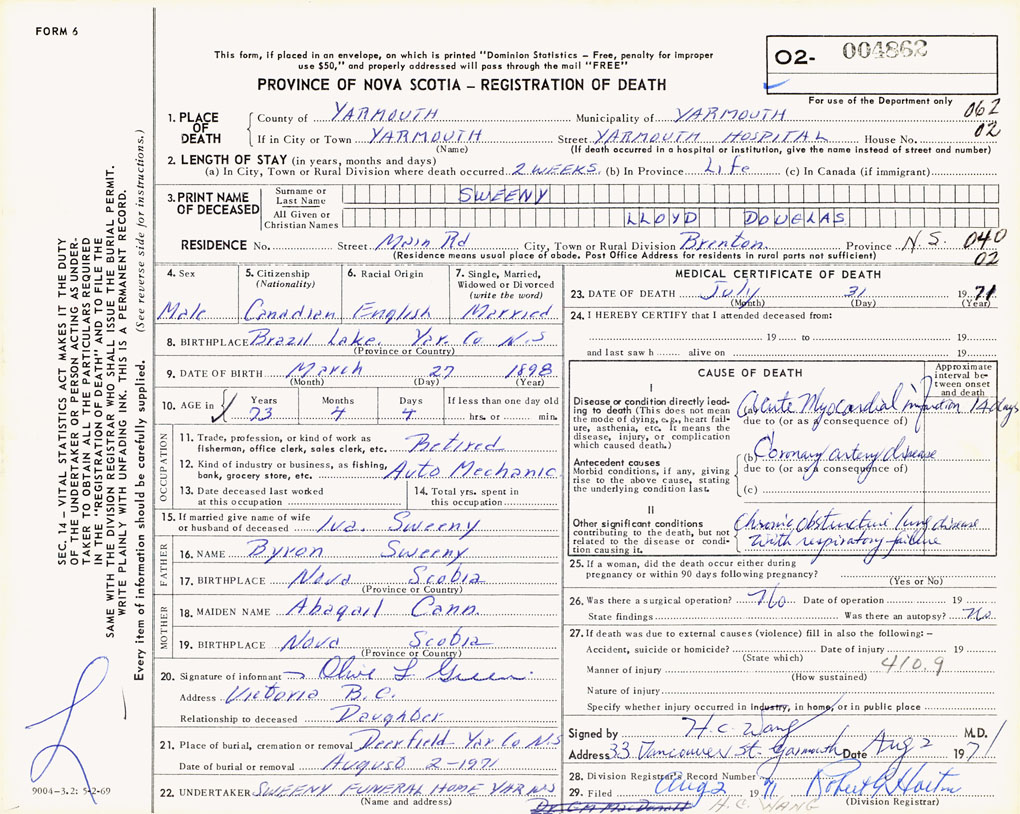 FORM 6
This form, if placed in an envelope, on which is printed "Dominion Statistics – Free, penalty for improper
use $50," and properly addressed will pass through the mail "FREE"
PROVINCE OF NOVA SCOTIA – REGISTRATION OF DEATH
02- 004862
For use of the Department only
062
02
1. PLACE OF DEATH County of YARMOUTH Municipality of YARMOUTH
If in City or Town YARMOUTH Street YARMOUTH HOSPITAL House No.
(Name) (If death occurred in a hospital or institution, give the name instead of street and number)
2. LENGTH OF STAY (in years, months and days)
(a) In City, Town or Rural Division where death occurred 2 WEEKS. (b) In Province Life (c) In Canada (if immigrant)
3. PRINT NAME OF DECEASED Surname or Last Name SWEENY
All Given or Christian Names LLOYD DOUGLAS
RESIDENCE No. Street Main Rd City, Town or Rural Division Brenton Province N.S. 040
(Residence means usual place of abode. Post Office Address for residents in rural parts not sufficient) 02
4. Sex Male
5. Citizenship (Nationality) Canadian
6. Racial Origin English
7. Single, Married, Widowed or Divorced (write the word) Married
8. BIRTHPLACE Brazil Lake. Yar. Co N.S
(Province or Country)
9. DATE OF BIRTH March 27 1898
(Month) (Day) (Year)
10. AGE in Years 73 Months 4 Days 4 If less than one day old hrs. or min.
OCCUPATION
11. Trade, profession, or kind of work as fisherman, office clerk, sales clerk, etc. Retired
12. Kind of industry or business, as fishing, bank, grocery store, etc. Auto Mechanic
13. Date deceased last worked at this occupation
14. Total yrs. spent in this occupation
15. If married give name of wife or husband of deceased Iva. Sweeny
FATHER
16. NAME Byron Sweeny
17. BIRTHPLACE Nova Scotia
(Province or Country)
MOTHER
18. MAIDEN NAME Abagail Cann.
19. BIRTHPLACE Nova Scotia
(Province or Country)
20. Signature of informant Olive L Green.
Address Victoria B.C.
Relationship to deceased Daughter
21. Place of burial, cremation or removal Deerfield Yar Co N.S
Date of burial or removal August 2-1971
22. UNDERTAKER SWEENY FUNERAL HOME YAR N.S
(Name and address)
MEDICAL CERTIFICATE OF DEATH
23. DATE OF DEATH July 31 1971
(Month) (Day) (Year)
24. I HEREBY CERTIFY that I attended deceased from:
19 to 19
and last saw h alive on 19
CAUSE OF DEATH
Approximate interval between onset and death
I
Disease or condition directly leading to death (This does not mean the mode of dying, e.g., heart failure, asthenia, etc. It means the disease, injury, or complication which caused death.)
(a) Acute Myocardial infarction 14 days
due to (or as a consequence of)
Antecedent causes
Morbid conditions, if any, giving rise to the above cause, stating the underlying condition last.
(b) Coronary artery disease
due to (or as a consequence of)
(c)
II
Other significant conditions contributing to the death, but not related to the disease or condition causing it.
Chronic obstructive lung disease
with respiratory failure
25. If a woman, did the death occur either during
pregnancy or within 90 days following pregnancy?
(Yes or No)
26. Was there a surgical operation? No Date of operation 19
State findings Was there an autopsy? No
27. If death was due to external causes (violence) fill in also the following: –
Accident, suicide or homicide? Date of injury 19
(State which) 410.9
Manner of injury
(How sustained)
Nature of injury
Specify whether injury occurred in industry, in home, or in public place
Signed by H.C. Wang M.D.
Address 33 Vancouver St. Yarmouth Date Aug 2 1971
28. Division Registrar's Record Number
29. Filed Aug 2 1971
(Division Registrar)
H.C. WANG
SEC. 14 – VITAL STATISTICS ACT MAKES IT THE DUTY
OF THE UNDERTAKER OR PERSON ACTING AS UNDER-
TAKER TO OBTAIN ALL THE PARTICULARS REQUIRED
IN THE "REGISTRATION OF DEATH" AND TO FILE THE
SAME WITH THE DIVISION REGISTRAR WHO SHALL ISSUE THE BURIAL PERMIT.
WRITE PLAINLY WITH UNFADING INK. THIS IS A PERMANENT RECORD.
Every item of information should be carefully supplied. (See reverse side for instructions.)
9004-3.2: 5-2-69